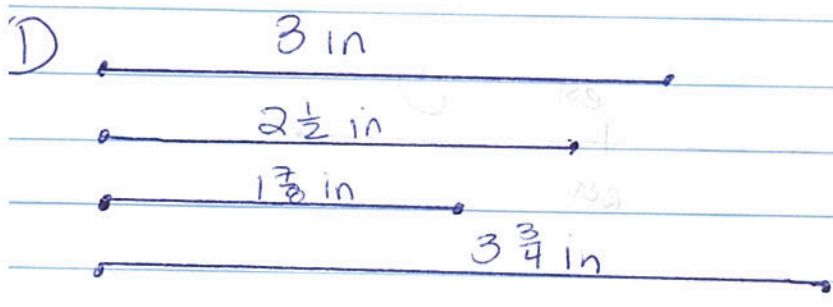 D
3 in
2 1/2 in
1 7/8 in
3 3/4 in